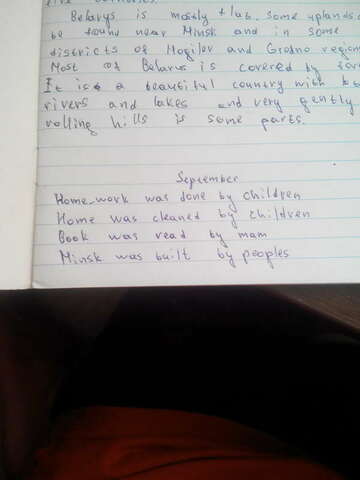 Belarys is mostly flat. Some uplands
be found near Minsk and in some
districts of Mogilev and Grodno region
Most of Belarus is covered by
It is a beautiful country with
rivers and lakes and very gently
rolling hills is some parts.
September
Home-work was done by children
Home was cleaned by children
Book was read by mam
Minsk was built by peoples